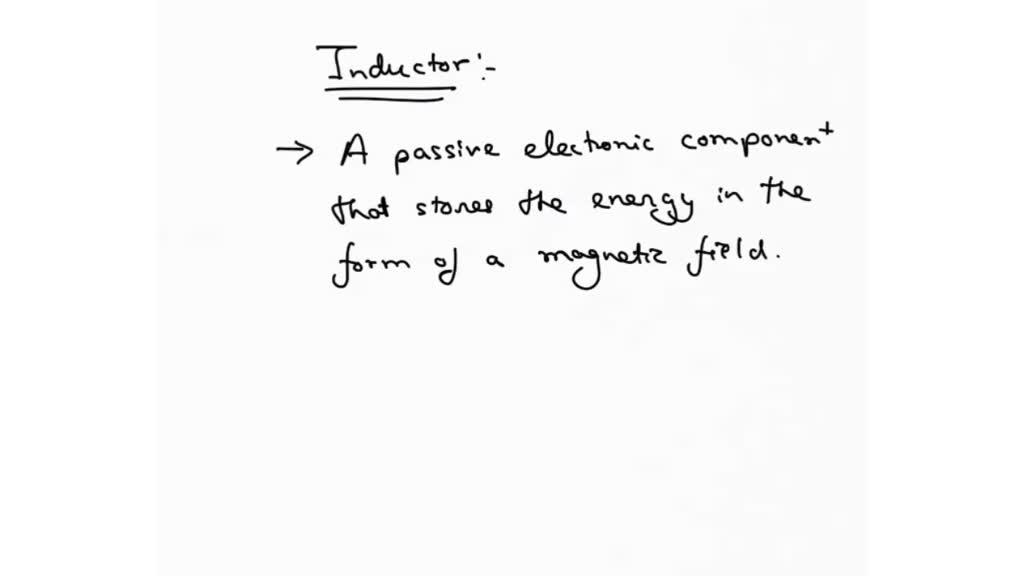 Inductor:-
→ A passive electronic component
that stores the energy in the
form of a magnetic field.